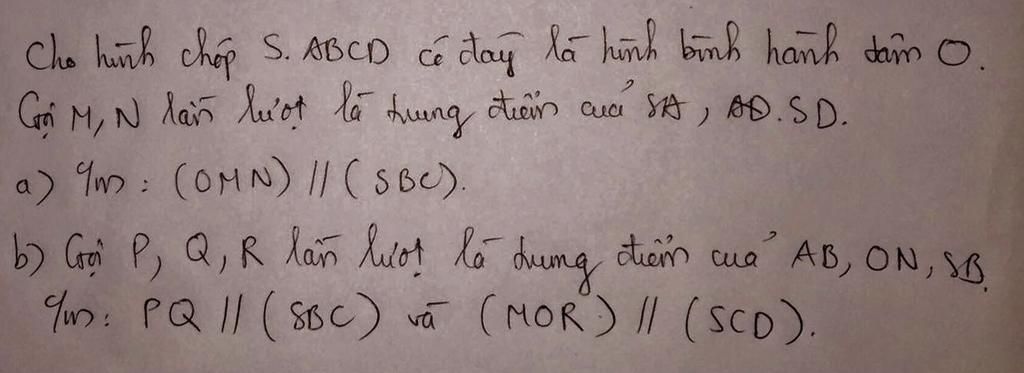 Cho hình chóp S.ABCD có đáy là hình bình hành tâm O.
Gọi M, N lần lượt là trung điểm của SA, SD.
a) c/m: (OMN) // (SBC).
b) Gọi P, Q, R lần lượt là trung điểm của AB, ON, SB.
c/m: PQ // (SBC) và (MOR) // (SCD).